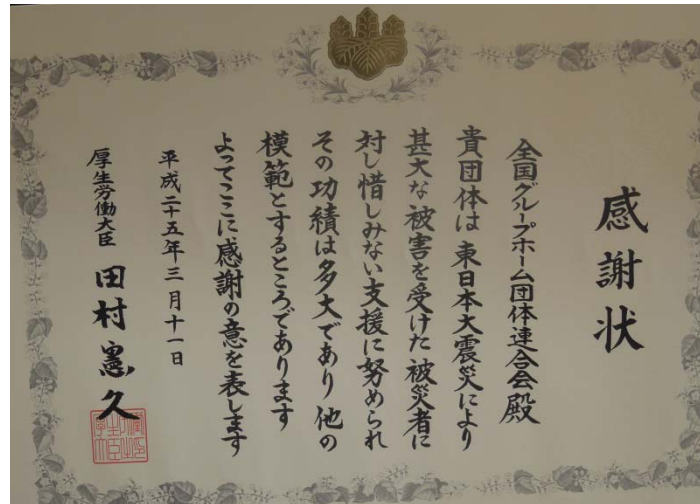 感謝状
全国グループホーム団体連合会殿
貴団体は東日本大震災により
甚大な被害を受けた被災者に
対し惜しみない支援に努められ
その功績は多大であり他の
模範とするところであります
よってここに感謝の意を表します
平成二十五年三月十一日
厚生労働大臣 田村憲久